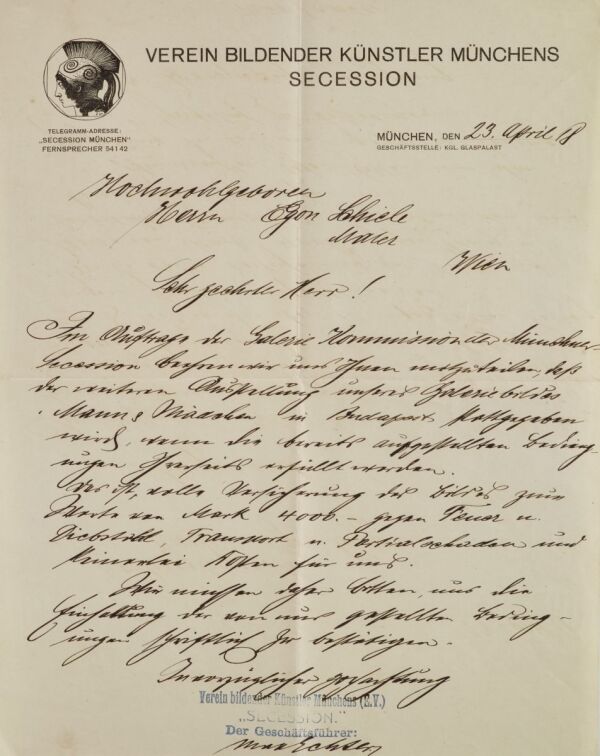 VEREIN BILDENDER KÜNSTLER MÜNCHENS
SECESSION
TELEGRAMM-ADRESSE:
„SECESSION MÜNCHEN"
FERNSPRECHER 54142
MÜNCHEN, DEN 23. April 18
GESCHÄFTSSTELLE: KGL. GLASPALAST
Hochwohlgeboren
Herrn Egon Schiele
Maler
Wien
Sehr geehrter Herr!
Im Auftrage der Galerie Kommission der Münchner
Secession beehren wir uns Ihnen mitzuteilen, daß
der weiteren Ausstellung unseres Galeriebildes
Mann & Mädchen in Budapest stattgegeben
wird, wenn die bereits aufgestellten Beding-
ungen Ihrerseits erfüllt werden.
Das ist, volle Versicherung des Bildes zum
Werte von Mark 4000.- gegen Feuer u.
Diebstahl, Transport u. Partialschaden und
keinerlei Kosten für uns.
Wir müssen daher bitten, uns die
Einhaltung der von uns gestellten Beding-
ungen schriftlich zu bestätigen.
In vorzüglicher Hochachtung
Verein bildender Künstler Münchens (E.V.)
„SECESSION."
Der Geschäftsführer: